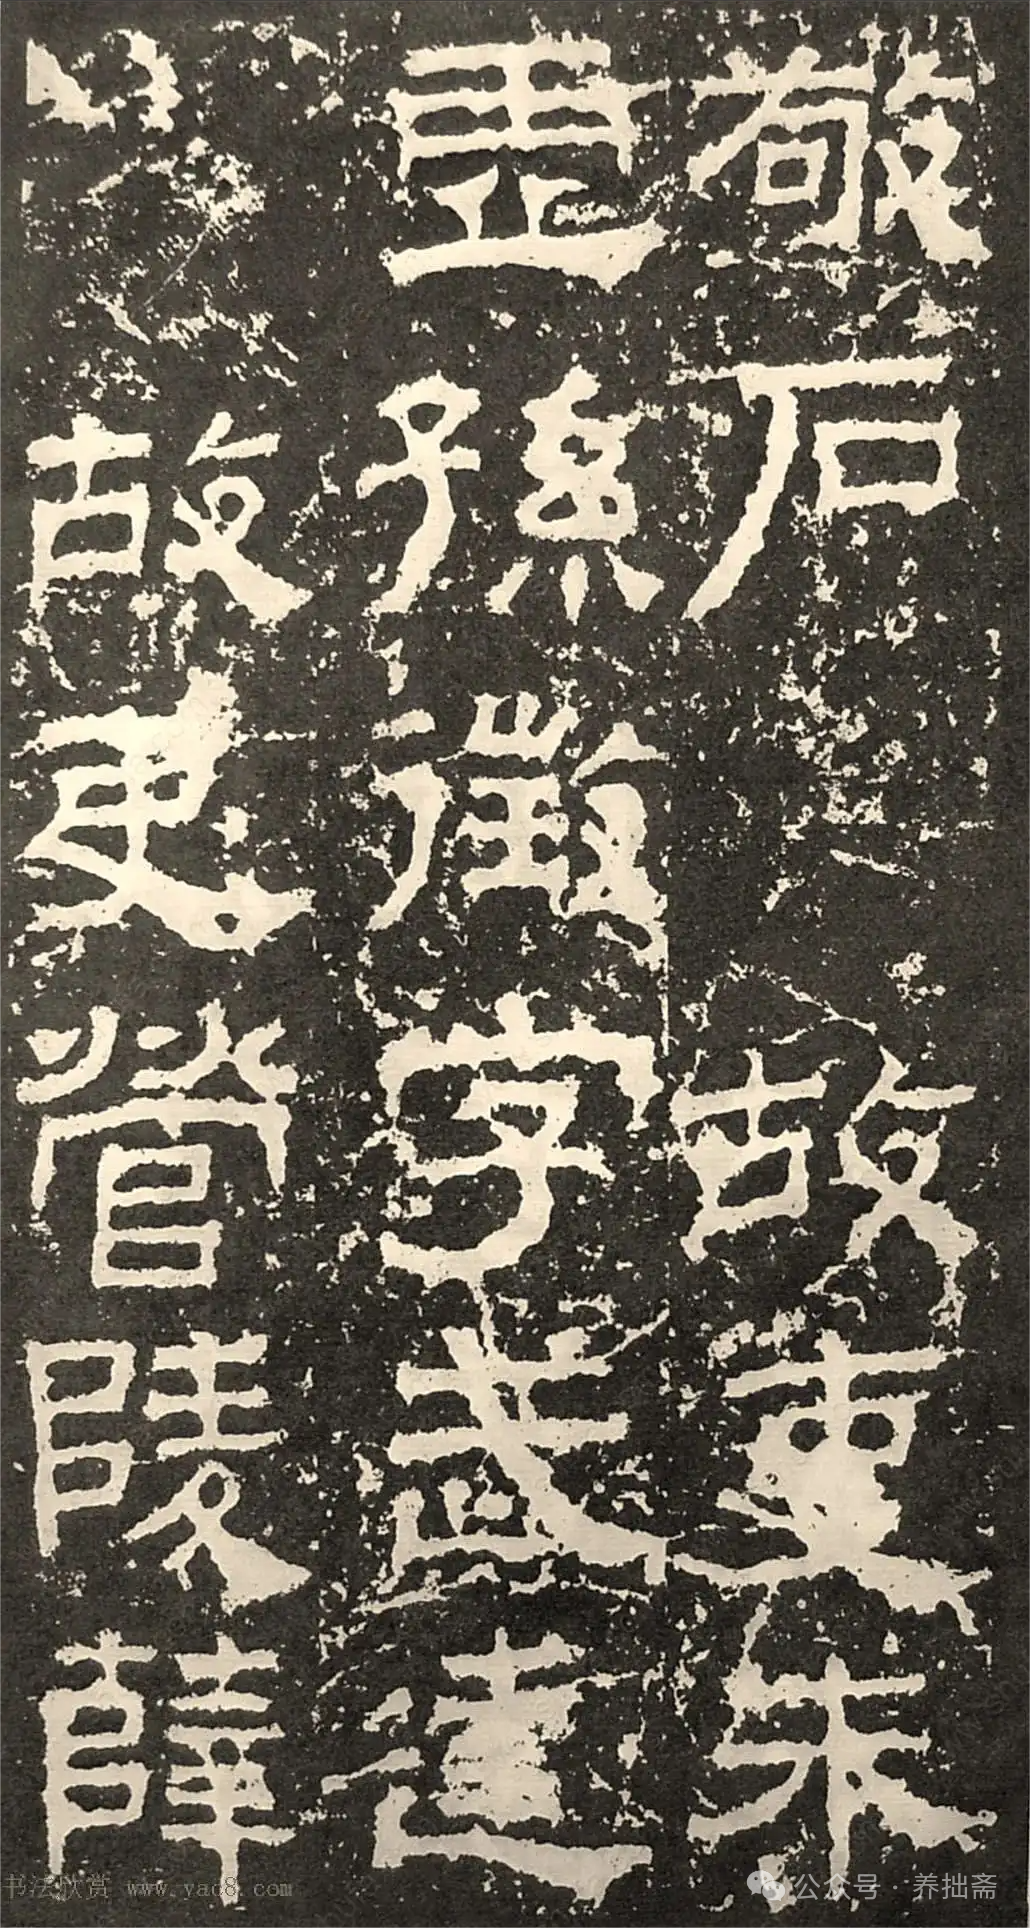 敬石故吏朱
虛孫徵字武達
故吏營陵薛
书法欣赏 www.yac8.com
公众号·养拙斋